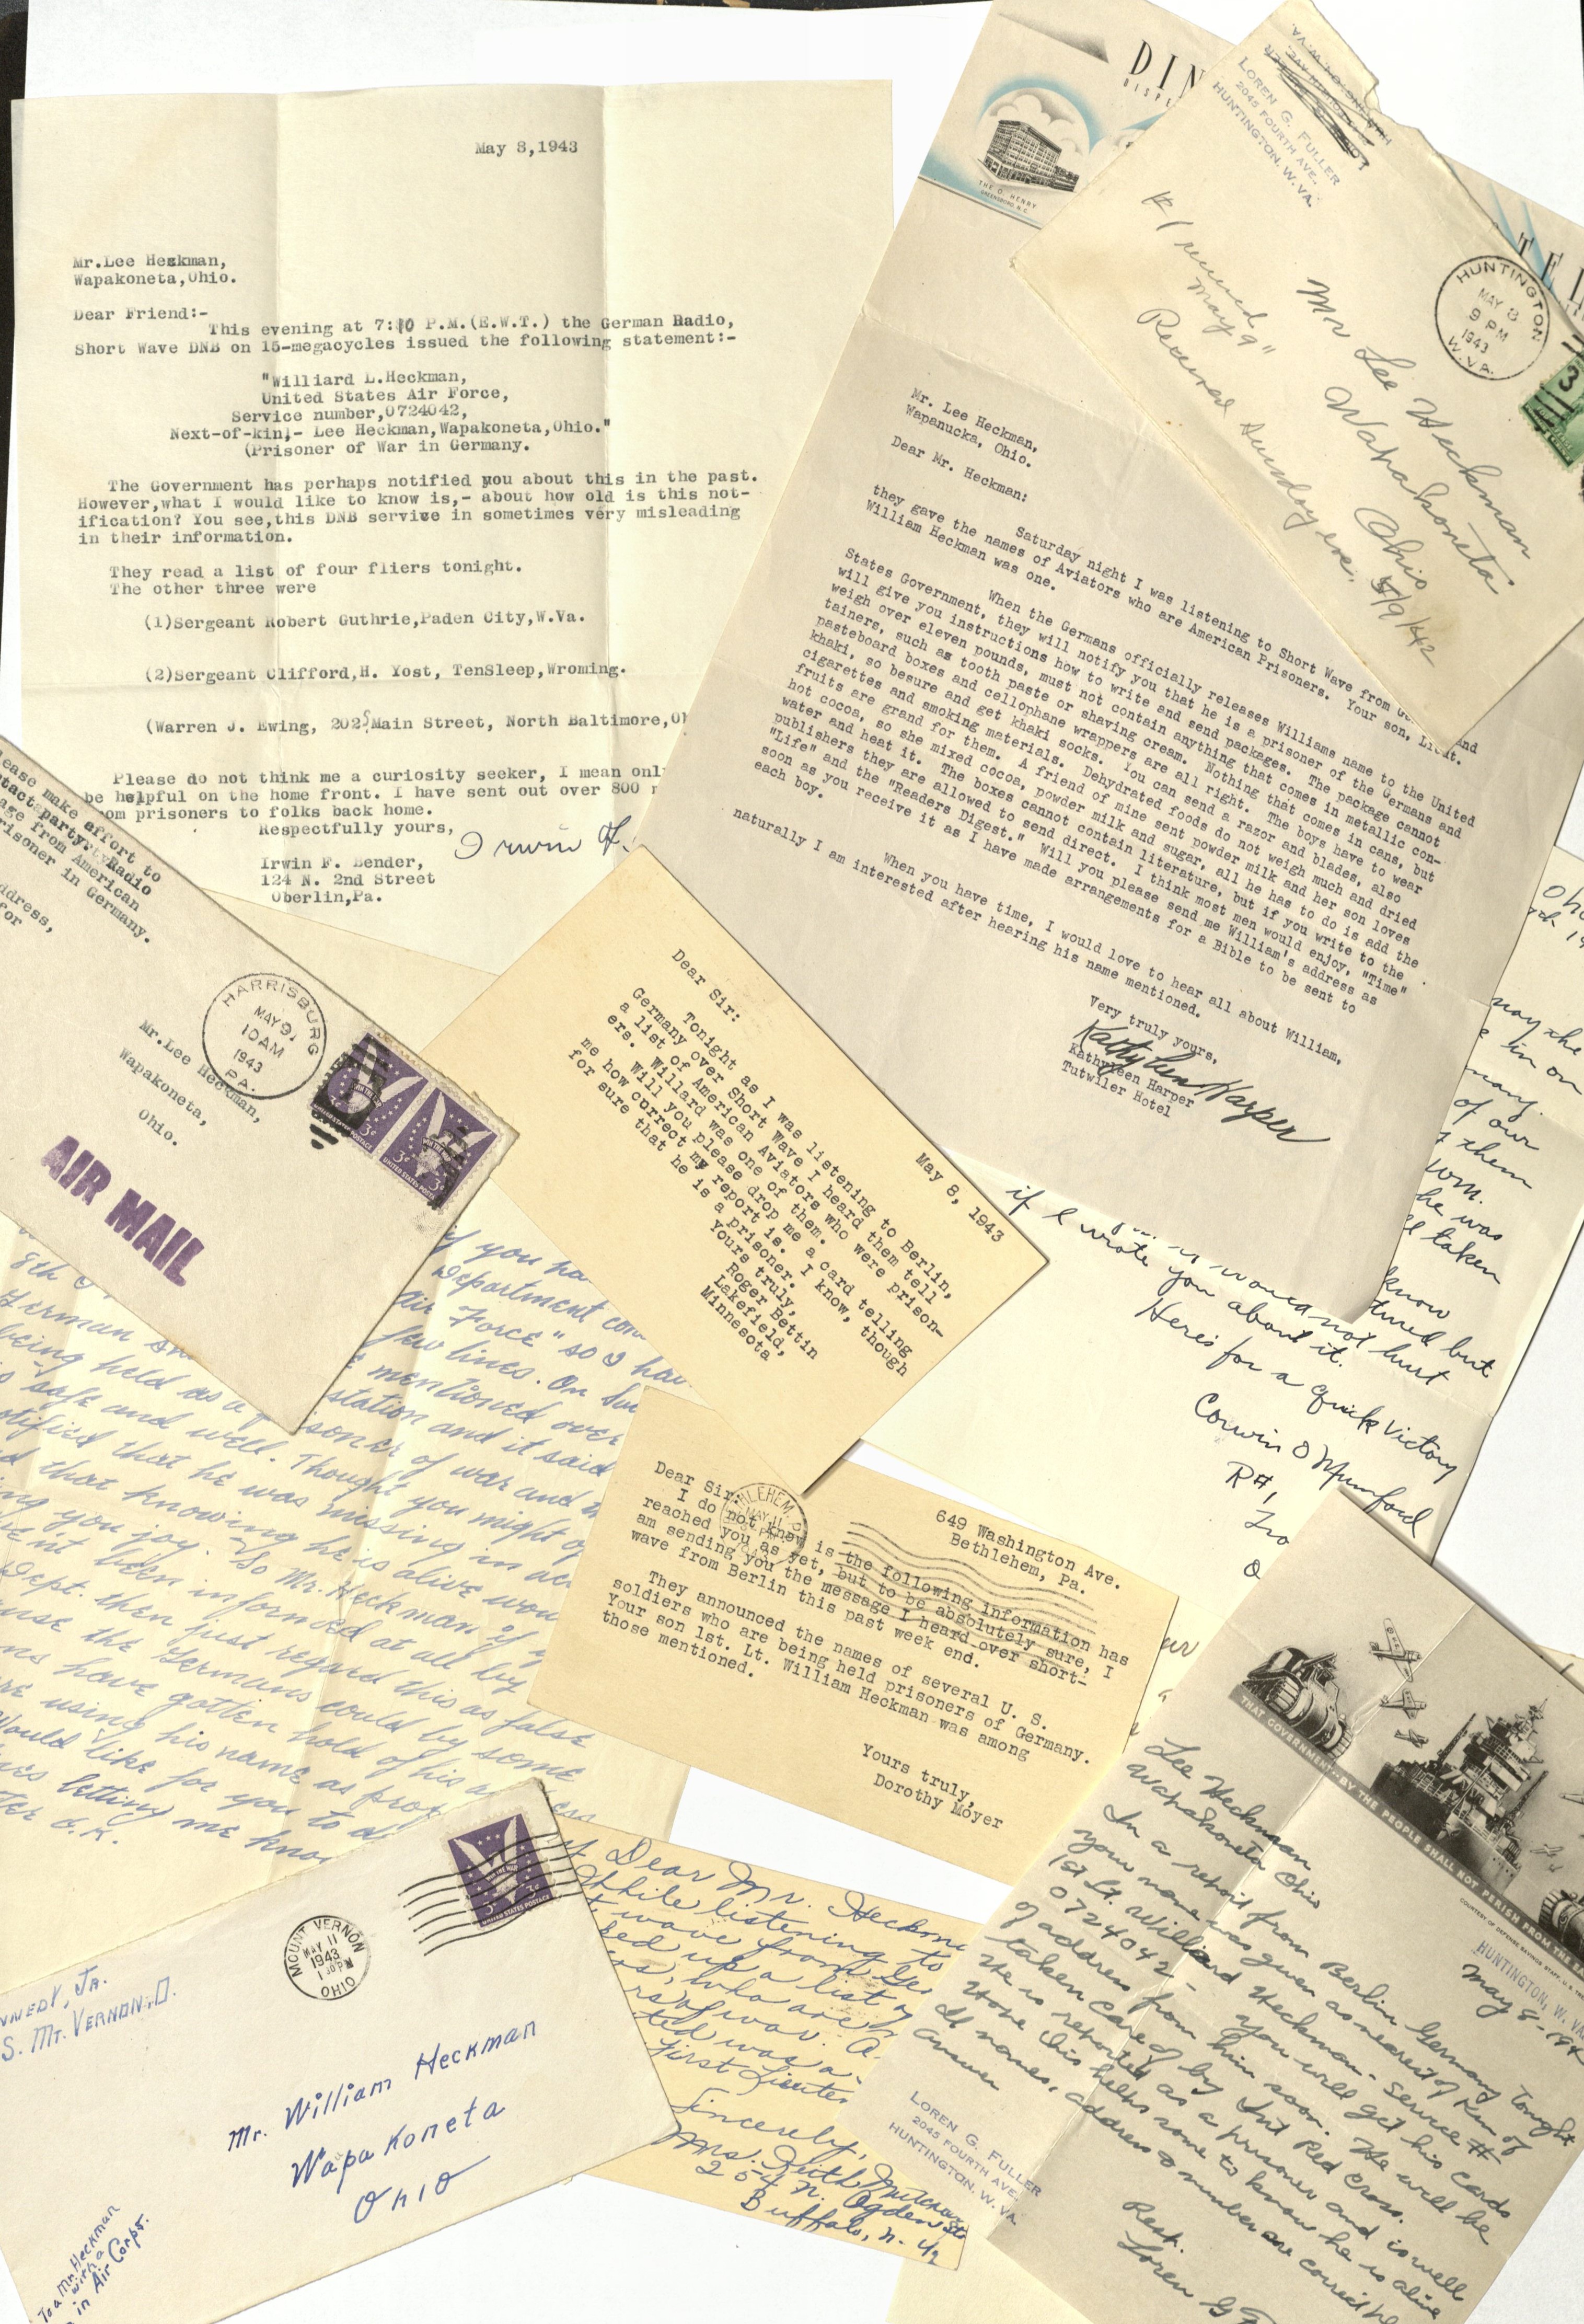 May 8,1943
Mr.Lee Heckman,
Wapakoneta,Ohio.
Dear Friend:-
This evening at 7:10 P.M.(E.W.T.) the German Radio,
Short Wave DNB on 15-megacycles issued the following statement:-
"Williard L.Heckman,
United States Air Force,
Service number,0724042,
Next-of-kin,- Lee Heckman,Wapakoneta,Ohio."
(Prisoner of War in Germany.
The Government has perhaps notified you about this in the past.
However,what I would like to know is,- about how old is this not-
ification? You see,this DNB service in sometimes very misleading
in their information.
They read a list of four fliers tonight.
The other three were
(1)Sergeant Robert Guthrie,Paden City,W.Va.
(2)Sergeant Clifford,H. Yost, TenSleep,Wroming.
(Warren J. Ewing, 202 Main Street, North Baltimore,
Please do not think me a curiosity seeker, I mean onl
be helpful on the home front. I have sent out over 800
om prisoners to folks back home.
Respectfully yours,
Irwin F.
Irwin F. Bender,
124 N. 2nd Street
Oberlin,Pa.
DIN
THE O. HENRY
GREENSBORO, N.C.
Mr. Lee Heckman,
Wapanucka, Ohio.
Dear Mr. Heckman:
Saturday night I was listening to Short Wave from
they gave the names of Aviators who are American Prisoners. Your son, Lieut.
William Heckman was one.
When the Germans officially releases Williams name to the United
States Government, they will notify you that he is a prisoner of the Germans and
will give you instructions how to write and send packages. The package cannot
weigh over eleven pounds, must not contain anything that comes in metallic con-
tainers, such as tooth paste or shaving cream. Nothing that comes in cans, but
pasteboard boxes and cellophane wrappers are all right. The boys have to wear
khaki, so besure and get khaki socks. You can send a razor and blades, also
cigarettes and smoking materials. Dehydrated foods do not weigh much and dried
fruits are grand for them. A friend of mine sent powder milk and her son loves
hot cocoa, so she mixed cocoa, powder milk and sugar, all he has to do is add the
water and heat it. The boxes cannot contain literature, but if you write to the
publishers they are allowed to send direct. I think most men would enjoy, "Time"
"Life" and the "Readers Digest." Will you please send me William's address as
soon as you receive it as I have made arrangements for a Bible to be sent to
each boy.
When you have time, I would love to hear all about William,
naturally I am interested after hearing his name mentioned.
Very truly yours,
Kathleen Harper
Kathleen Harper
Tutwiler Hotel
LOREN G. FULLER
2045 FOURTH AVE.
HUNTINGTON, W. VA.
HUNTINGTON
MAY 8
9 PM
1943
W.VA.
#1 received
May 9"
Received Sunday eve. 5/9/42
Mr Lee Heckman
Wapakoneta
Ohio
lease make effort to
tact party. Radio
age from American
risoner in Germany.
ddress,
for
HARRISBURG
MAY 9
10 AM
1943
PA.
Mr.Lee Heckman,
Wapakoneta,
Ohio.
UNITED STATES POSTAGE
3¢
AIR MAIL
May 8, 1943
Dear Sir:
Tonight as I was listening to Berlin,
Germany over Short Wave I heard them tell
a list of American Aviators who were prison-
ers. Willard was one of them.
Will you please drop me a card telling
me how currect my report is. I know, though
for sure that he is a prisoner.
Yours truly,
Roger Bettin
Lakefield,
Minnesota
may the
in on
many.
of our
them
Wm.
he was
taken
know
tured but
would not hurt
if I wrote you about it.
Here's for a quick Victory
Corwin O Mumford
R#1
O
if you ha
Department con
Air Force" so I hav
few lines. On Sun
8th
mentioned over
German
station and it said
being held as a prisoner of war and
safe and well. Thought you might
otified that he was missing in ac
d that knowing he is alive wou
ing you joy. So Mr. Heckman if
ve'nt been informed at all by
Dept. then just regard this as false
use the Germans could by some
ns have gotten hold of his address
re using his name as prop
Would like for you to
letting me know
O.K.
649 Washington Ave.
Bethlehem, Pa.
MAY 11
Dear Sir:
I do not know is the following information has
reached you as yet, but to be absolutely sure, I
am sending you the message I heard over short-
wave from Berlin this past week end.
They announced the names of several U. S.
soldiers who are being held prisoners of Germany.
Your son 1st. Lt. William Heckman was among
those mentioned.
Yours truly,
Dorothy Moyer
MOUNT VERNON
MAY 11
1943
OHIO
UNITED STATES POSTAGE
3¢
NNEDY, JR.
S. MT. VERNON, O.
Mr. William Heckman
Wapakoneta
Ohio
To a Mr. Heckman
with a
in Air Corps.
Dear Mr. Heckma
While listening to
t wave from Ge
ked up a list
rs, who are
rs of war. A
ted was a
First Lieute
Sincerely,
Mrs. Keith Mitchen
254 N. Ogden St
Buffalo, N. Y.
THAT GOVERNMENT...BY THE PEOPLE SHALL NOT PERISH FROM THE
COURTESY OF DEFENSE SAVINGS STAFF, U.S.
HUNTINGTON, W. VA
May 8-19
Lee Heckman
Wapakoneta Ohio
In a report from Berlin Germany Tonight
your name was given as nearest of Kin of
1st Lt. Williard Heckman- Service #
0724042- you will get his cards
of address from him soon. He will be
taken care of by Int Red Cross.
He is reported as a prisoner and is well
Hope this helps some to know he is alive
If names, address & number are correct
answer
Rest.
Loren G
LOREN G. FULLER
2045 FOURTH AVE.
HUNTINGTON, W. VA.